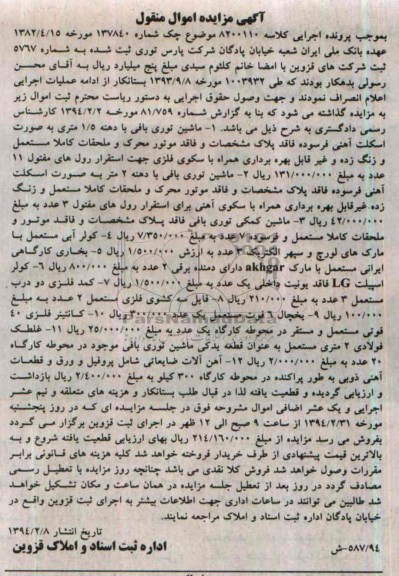 آگهی مزایده اموال منقول
بموجب پرونده اجرایی کلاسه ۸۲۰۰۱۱۰ موضوع چک شماره ۱۳۷۸۴۰ مورخه ۱۳۸۲/۴/۱۵
عهده بانک ملی ایران شعبه خیابان پادگان شرکت پارس توری ثبت شده به شماره ۵۷۶۷
ثبت شرکت های قزوین با امضا خانم کلثوم سیدی مبلغ پنج میلیارد ریال به آقای محسن
رسولی بدهکار بودند که طی ۱۰۰۳۹۳۲ مورخه ۱۳۹۳/۹/۸ بستانکار از ادامه عملیات اجرایی
اعلام انصراف نمودند و جهت وصول حقوق اجرایی به دستور ریاست محترم ثبت اموال زیر
به مزایده گذاشته می شود که بنا به گزارش شماره ۸۱/۷۵۹ مورخه ۱۳۹۴/۲/۲ کارشناس
رسمی دادگستری به شرح ذیل می باشد. ۱- ماشین توری بافی با دهنه ۱/۵ متری به صورت
اسکلت آهنی فرسوده فاقد پلاک مشخصات و فاقد موتور محرک و ملحقات کاملا مستعمل
و زنگ زده و غیر قابل بهره برداری همراه با سکوی فلزی جهت استقرار رول های مفتول ۱۱
عدد به مبلغ ۱۳۱/۰۰۰/۰۰۰ ریال ۲- ماشین توری بافی با دهنه ۲ متر به صورت اسکلت
آهنی فرسوده فاقد پلاک مشخصات و فاقد موتور محرک و ملحقات کاملا مستعمل و زنگ
زده غیرقابل بهره برداری همراه با سکوی آهنی برای استقرار رول های مفتول ۳ عدد به مبلغ
۴۲/۰۰۰/۰۰۰ ریال ۳- ماشین کمکی توری بافی فاقد پلاک مشخصات و فاقد موتور و
ملحقات کاملا مستعمل و فرسوده ۷ عدد به مبلغ ۷/۳۵۰/۰۰۰ ریال ۴- کولر آبی مستعمل با
مارک های لورچ و سپهر الکتریک ۳ عدد به ارزش ۱/۵۰۰/۰۰۰ ریال ۵- بخاری کارگاهی
ایرانی مستعمل با مارک akhgar دارای دمنده برقی ۲ عدد به مبلغ ۸۰۰/۰۰۰ ریال ۶- کولر
اسپیلت LG فاقد یونیت داخلی یک عدد به مبلغ ۱/۵۰۰/۰۰۰ ریال ۷- کمد فلزی دو درب
مستعمل ۳ عدد به مبلغ ۲۱۰/۰۰۰ ریال ۸- فایل سه کشوی فلزی مستعمل ۲ عدد به مبلغ
۱۰۰/۰۰۰ ریال ۹- یخچال فوت مستعمل یک عدد ۳۰۰/۰۰۰ ریال ۱۰- کانتینر فلزی ۴۰
فوتی مستعمل و مستقر در محوطه کارگاه یک عدد به مبلغ ۲۵/۰۰۰/۰۰۰ ریال ۱۱- غلطک
فولادی ۲ متری مستعمل به عنوان قطعه یدکی ماشین توری بافی موجود در محوطه کارگاه
۲۰ عدد به مبلغ ۲/۰۰۰/۰۰۰ ریال ۱۲- آهن آلات ضایعاتی شامل پروفیل و ورق و قطعات
آهنی ذوبی به طور پراکنده در محوطه کارگاه ۳۰۰ کیلو به مبلغ ۲/۴۰۰/۰۰۰ ریال بازداشت
و ارزیابی گردیده و قطعیت یافته لذا در قبال طلب بستانکار و هزینه های متعلقه و نیم عشر
اجرایی و یک عشر اضافی اموال مشروحه فوق در جلسه مزایده ای که در روز پنجشنبه
مورخه ۱۳۹۴/۲/۳۱ از ساعت ۹ صبح الی ۱۲ ظهر در اجرای ثبت قزوین برگزار می گردد
بفروش می رسد مزایده از مبلغ ۲۱۴/۱۶۰/۰۰۰ ریال بهای ارزیابی قطعیت یافته شروع و به
بالاترین قیمت پیشنهادی از طرف خریدار فروخته خواهد شد کلیه هزینه های قانونی برابر
مقررات وصول خواهد شد فروش کلا نقدی می باشد چنانچه روز مزایده با تعطیل رسمی
مصادف گردد در روز بعد از تعطیل جلسه مزایده در همان ساعت و مکان تشکیل خواهد
شد طالبین می توانند در ساعات اداری جهت اطلاعات بیشتر به اجرای ثبت قزوین واقع در
خیابان پادگان اداره ثبت اسناد و املاک مراجعه نمایند.
تاریخ انتشار ۱۳۹۴/۲/۸
۵۸۷/۹۴-ش اداره ثبت اسناد و املاک قزوین